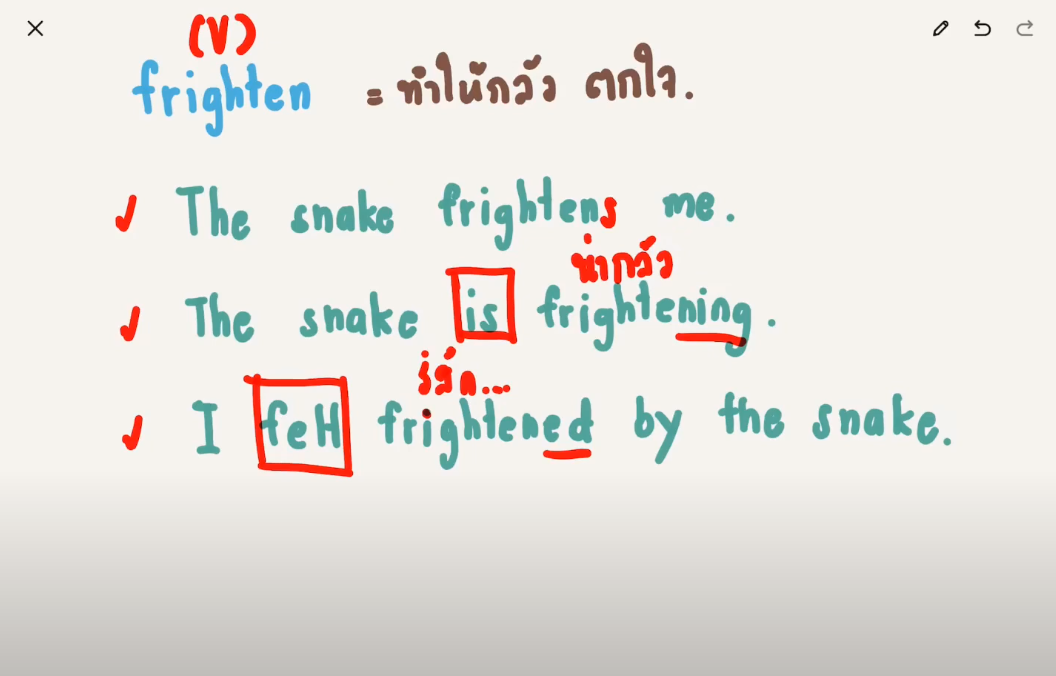 (V)
frighten = ทำให้กลัว ตกใจ.
✓ The snake frightens me.
น่ากลัว
✓ The snake is frightening.
รู้สึก...
✓ I felt frightened by the snake.